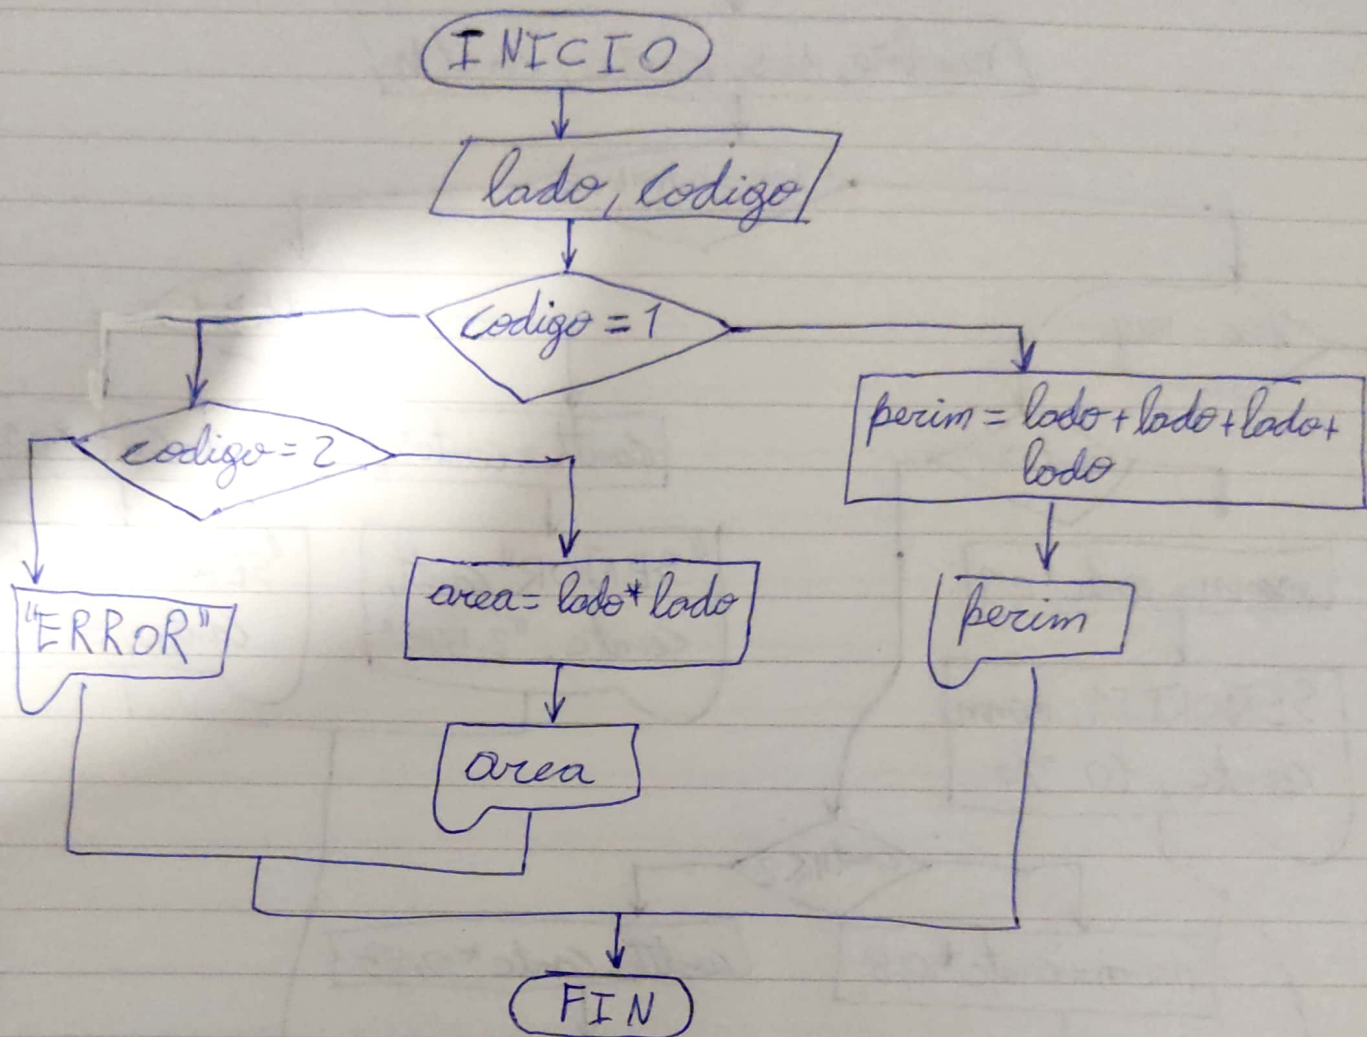 INICIO
lado, codigo
codigo = 1
codigo = 2
perim = lado + lado + lado +
lado
"ERROR"
area = lado * lado
perim
area
FIN